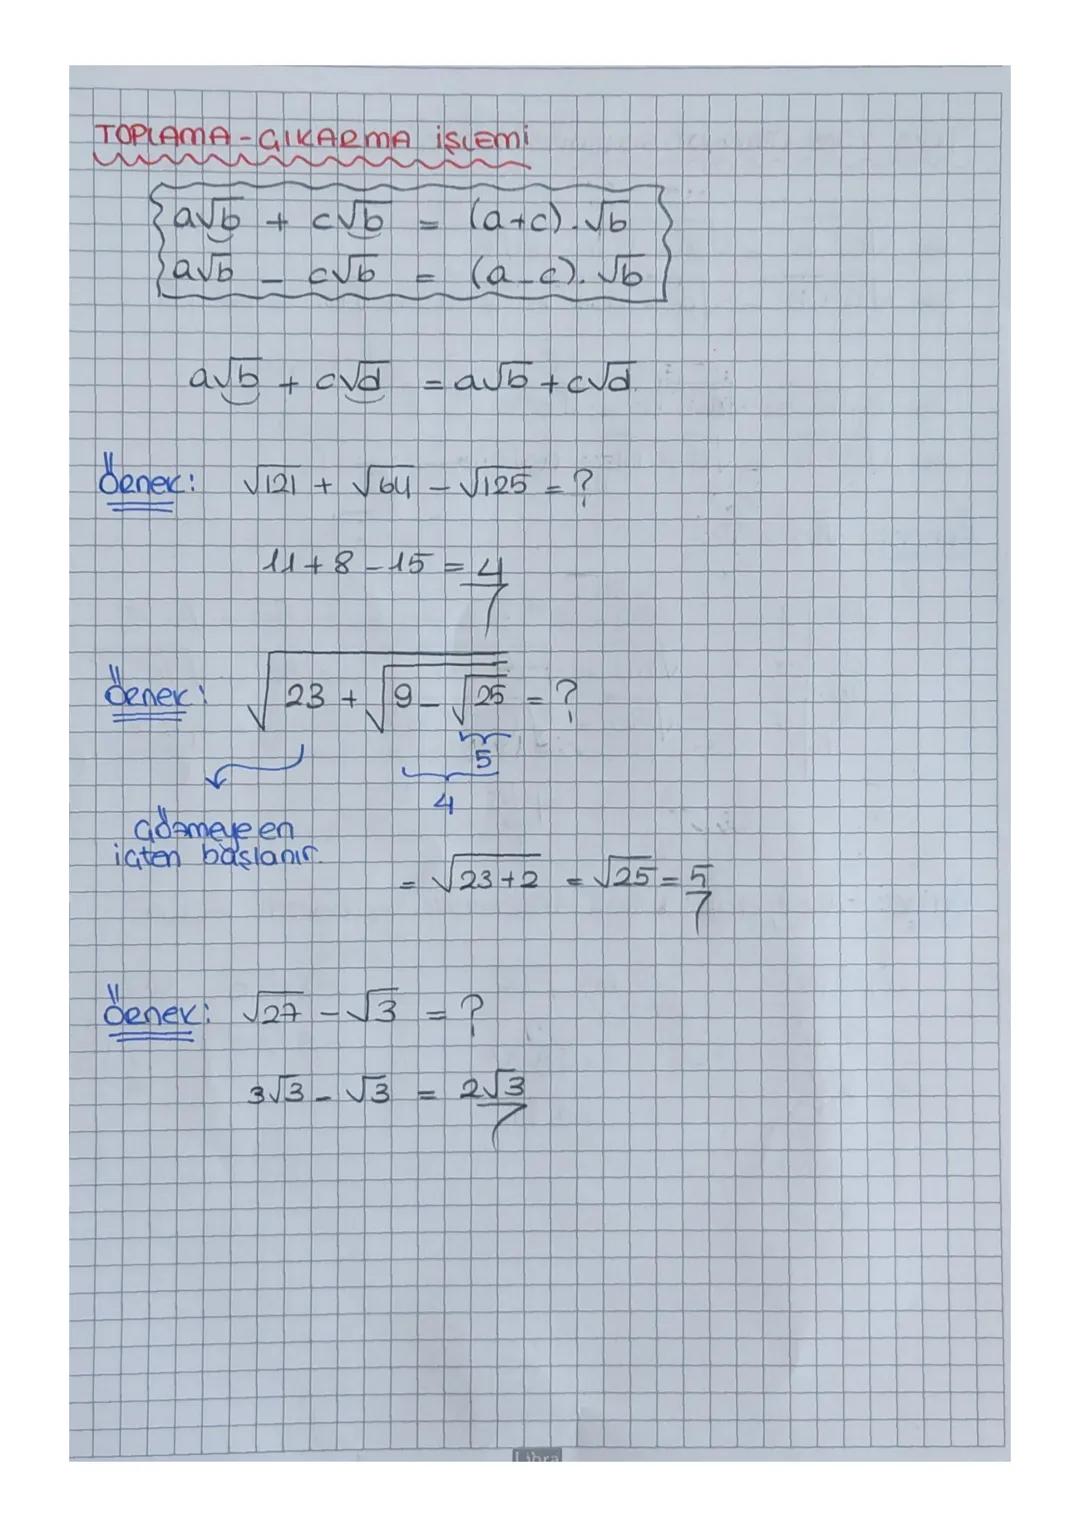 TOPLAMA-ÇIKARMA İŞLEMİ
a√b + c√b = (a+c).√b
a√b - c√b = (a-c).√b
a√b + c√d = a√b + c√d
Örnek: √121 + √64 - √125 = ?
11 + 8 - 15 = 4
Örnek: √(23 + √(9 - √25)) = ?
5
4
çözmeye en
içten başlanır.
= √(23+2) = √25 = 5
Örnek: √27 - √3 = ?
3√3 - √3 = 2√3
Libra